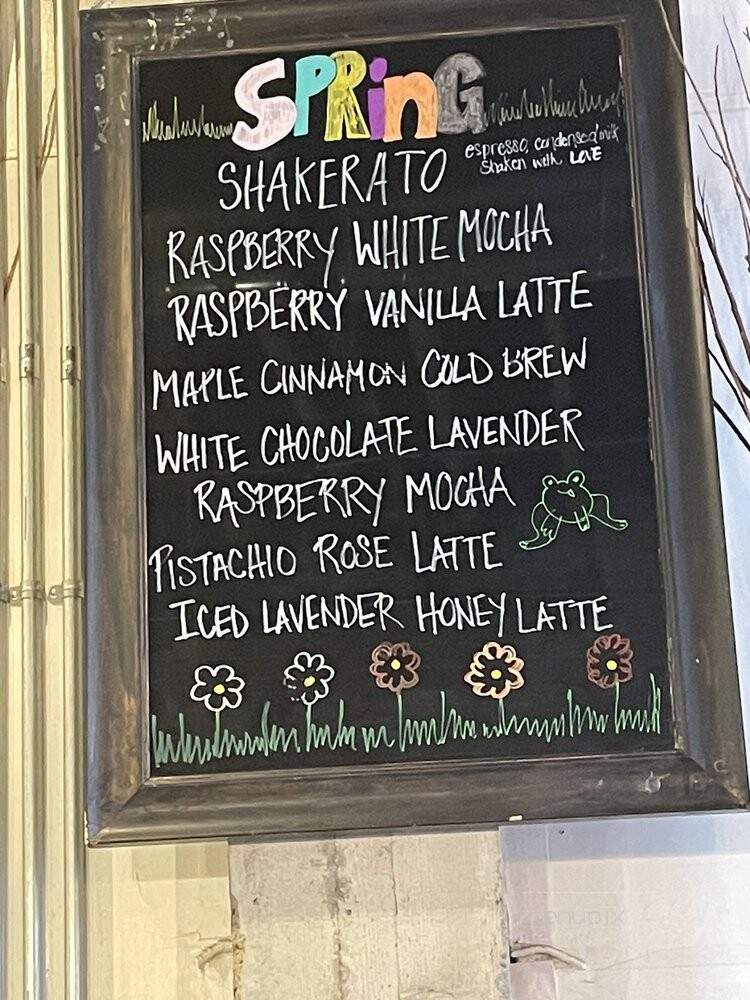 SPRinG
espresso, condensed milk
Shaken with LOVE
SHAKERATO
RASPBERRY WHITE MOCHA
RASPBERRY VANILLA LATTE
MAPLE CINNAMON COLD BREW
WHITE CHOCOLATE LAVENDER
RASPBERRY MOCHA
PISTACHIO ROSE LATTE
ICED LAVENDER HONEY LATTE